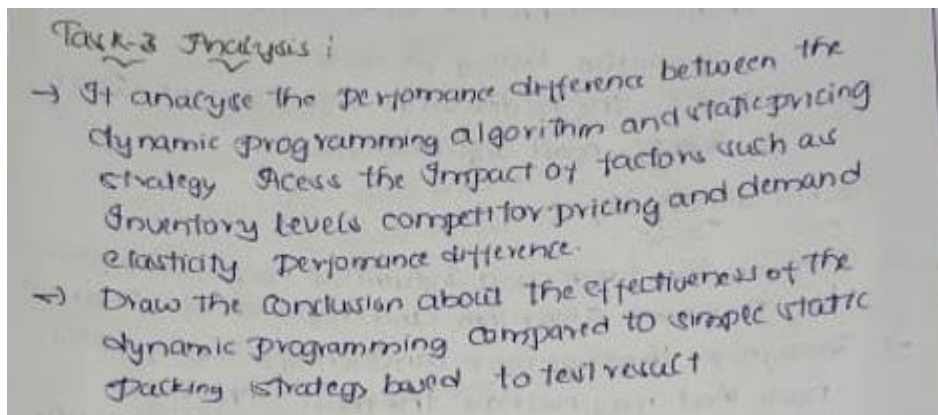 Task-3 Analysis :
→ It analyse the perfomance difference between the
dynamic programming algorithm and static pricing
strategy Acess the Impact of factors such as
Inventory levels competitor pricing and demand
elasticity perfomance difference.
→ Draw the conclusion about the effectiveness of the
dynamic programming compared to simpec static
packing strategy based to test result